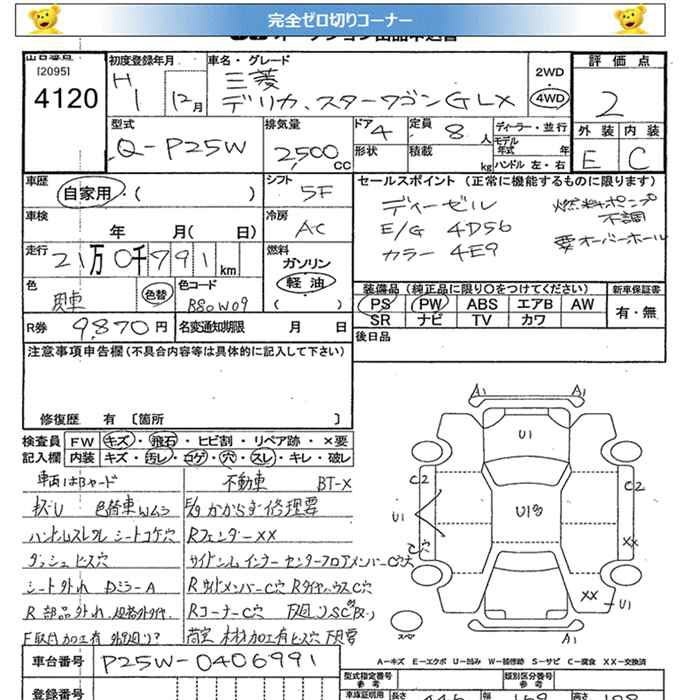 完全ゼロ切りコーナー
出品番号
[2095]
4120
初度登録年月
H 1 12月
車名・グレード
三菱
デリカ.スターワゴンGLX
2WD
・
4WD
評価点
2
外装 内装
E C
型式
Q-P25W
排気量
2,500 CC
ドア 4
定員 8 人
ディーラー・並行
モデル年式 年
形状
積載 kg
ハンドル 左・右
車歴
自家用・( )
シフト
5F
セールスポイント(正常に機能するものに限ります)
ディーゼル
E/G 4D56
カラー 4E9
燃料ポンプ
不調
要オーバーホール
車検
年 月( 日)
冷房
AC
走行
21万0千791km
燃料
ガソリン
・
軽油
( )
色
色替
色コード
B80W09
装備品(純正品に限り○をつけてください)
PS PW ABS エアB AW
SR ナビ TV カワ
新車保証書
有・無
R券 9,870円
名変通知期限 月 日
後日品
注意事項申告欄(不具合内容等は具体的に記入して下さい)
修復歴 有 〔箇所 〕
検査員 FW キズ・飛石・ヒビ割・リペア跡・×要
記入欄 内装 キズ・汚レ・コゲ・穴・スレ・キレ・破レ
車両はBヤード
不動車 BT-X
色替車Wムラ
かからず修理要
ハンドルスレ シートコゲ穴
Rフェンダー XX
ダッシュビス穴
サイドシル インナー センターフロアメンバーC穴大
シート外れ DミラーA
R部品外れ
Rコーナー C穴
F取付加工有
A1 A1
U1
C2 C2
U1
U13
XX
XX
U1
A1
スペア
A-キズ E-エクボ U-凹み W-補修跡 S-サビ C-腐食 XX-交換済
車台番号 P25W-0406991
登録番号
型式指定番号
参考
類別区分番号
参考
車庫証明用
長さ
幅
高さ